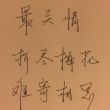 最关情
折尽梅花
难寄相思